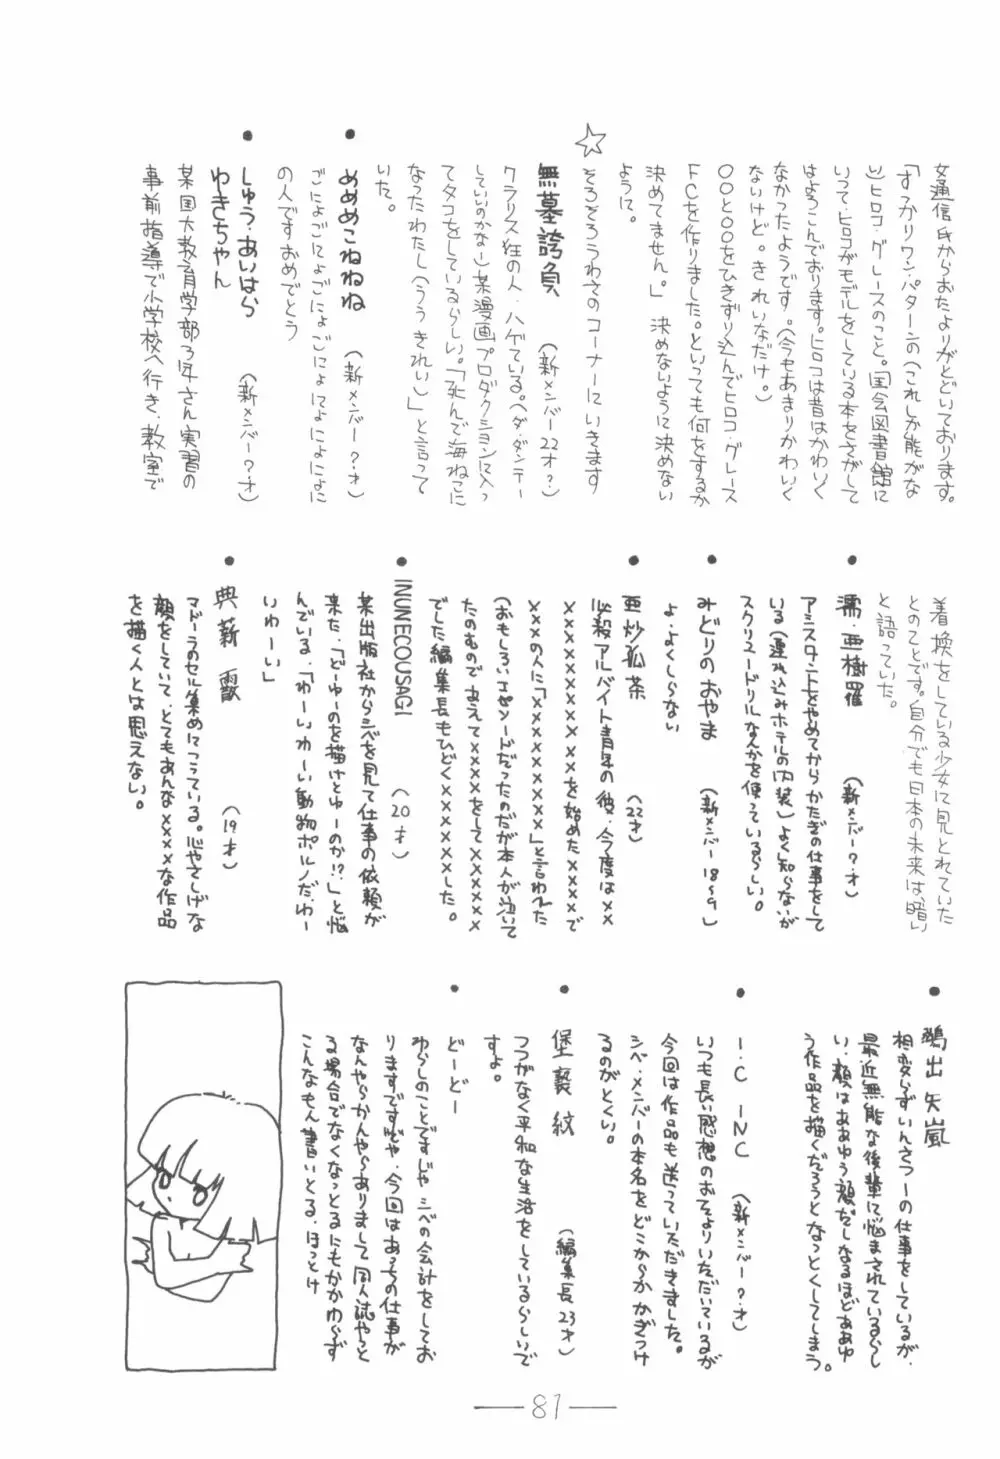 女通信氏からおたよりがとどいております。
「すっかりワン・パターンの(これしか能がな
い)ヒロコ・グレースのこと。「国会図書館に
いって、ヒロコがモデルをしている本をさがして
はよろこんでおります。ヒロコは昔はかわいく
なかったようです。(今もあまりかわいく
ないけど。きれいなだけ。)
○○○と○○をひきずり込んでヒロコ・グレース
FCを作りました。といっても何をするか
決めてません。」決めないように決めない
ように。
☆そろそろうわさのコーナーにいきます
無墓誇負 (新メンバー22才?)
クラリス狂の人、ハゲている。(ダ・ダンテー
していいのかな!)某漫画プロダクションに入っ
てタコをしているらしい。「死んで海ねこに
なったわたし(うう きれい)」と言って
いた。
・めめめこねねね (新メンバー?・才)
ごにょごにょごにょごにょにょにょにょに
の人ですおめでとう
・しゅう・あいはら (新メンバー?・才)
わきちゃん
某国大教育学部3年さん実習の
事前指導で小学校へ行き、教室で
着換をしている少女に見とれていた
とのことです。自分でも日本の未来は、暗い
と語っていた。
・濡・亜樹羅 (新メンバー?・才)
アシスタントをやめてからかたぎの仕事をして
いる(連れ込みホテルの内装)よく知らないが
スクリュードリルなんかを使っているらしい。
・みどりのおやま (新メンバー18~9)
よ・よくしらない
・亜炒狐茶 (22才)
必殺アルバイト青年の彼、今度は××
××××××××を始めた××××で
××××の人に「××××××××」と言われた
(おもしろいエピソードだったのだが本人が泣いて
たのむので あえて××××をして×××××
でした編集長もひどく××××××した。
・INUNECOUSAGI (20才)
某出版社からシベを見て仕事の依頼が
来た、「どーゆーのを描けとゆーのか!?」と悩
んでいる、「わーいわーい動物ポルノだ、わー
いわーい」
・典薪霞 (19才)
マドーラのセル集めにこっている。心やさしげな
顔をしていて、とてもあんな××××な作品
を描く人とは思えない。
・鵺出矢嵐
相変らずいんさつーの仕事をしているが、
最近無能な後輩に悩まされているらし
い、顔はああゆう顔だしなるほどああゆ
う作品を描くだろうとなっとくしてしまう。
・I・C INC (新メンバー?・才)
いつも長い感想のおたよりいただいているが
今回は作品も送っていただきました。
シベ・メンバーの本名をどこからかかぎつけ
るのがとくい。
・堡褻紋 (編集長23才)
つつがなく平和な生活をしているらしいで
すよ。
・どーどー
わらしのことですじゃ シベの会計をしてお
りますですじゃ、今回はあっちの仕事が
なんやらかんやらありまして 同人誌やっと
る場合でなくなっとるにもかかわらず
こんなもん書いとる、ほっとけ
81